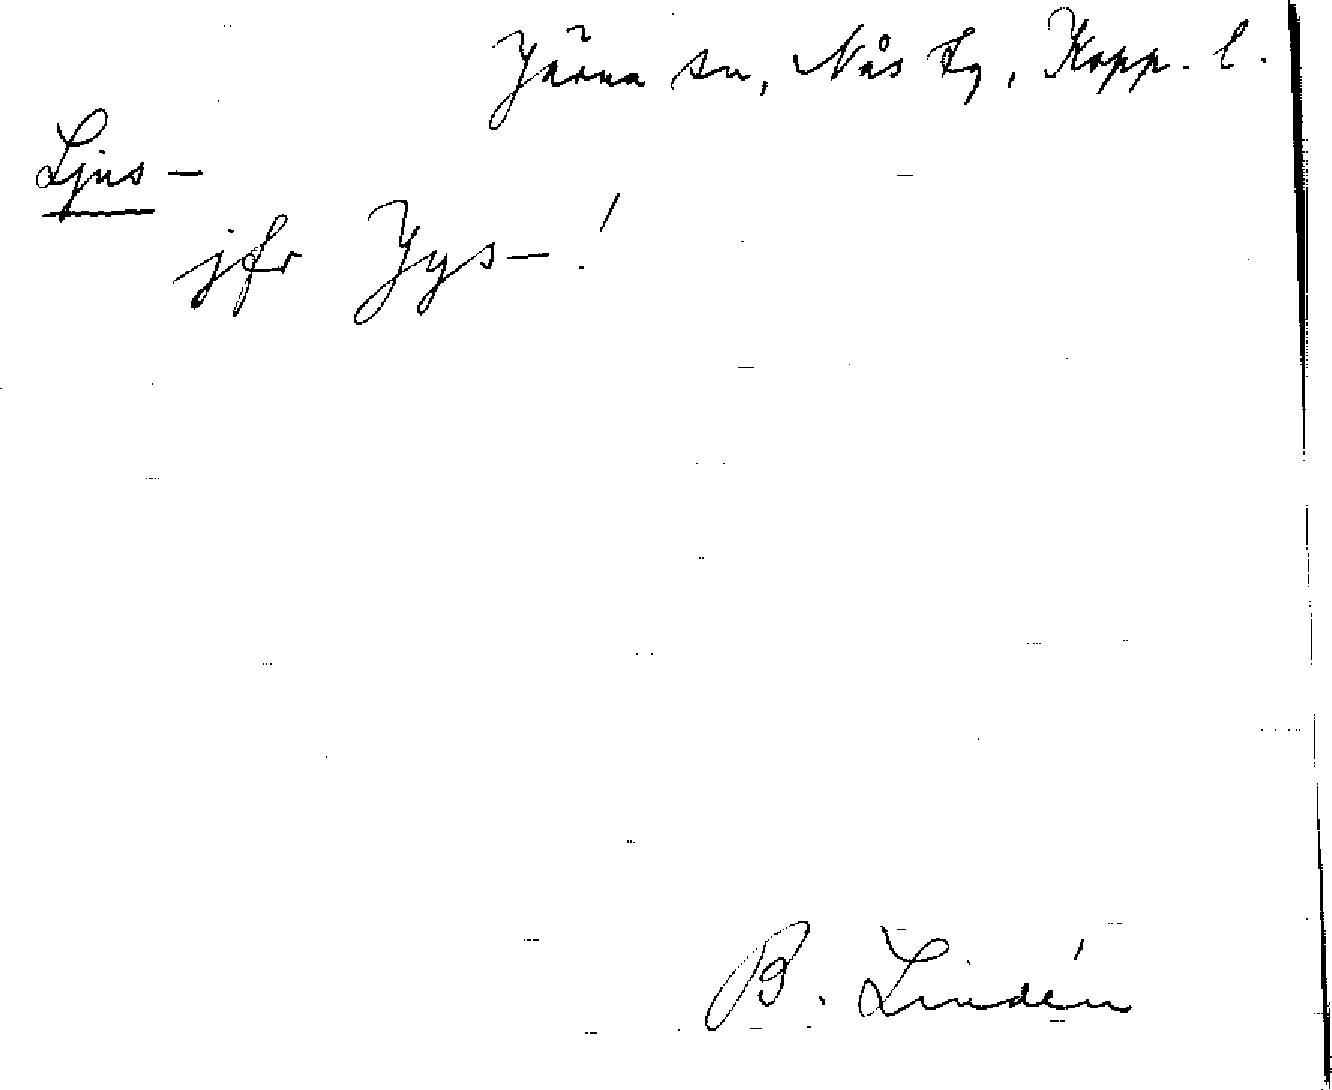 Järna sn, Nås tg, Kopp. l.
Ljus-
jfr Jys-!
B. Lindén